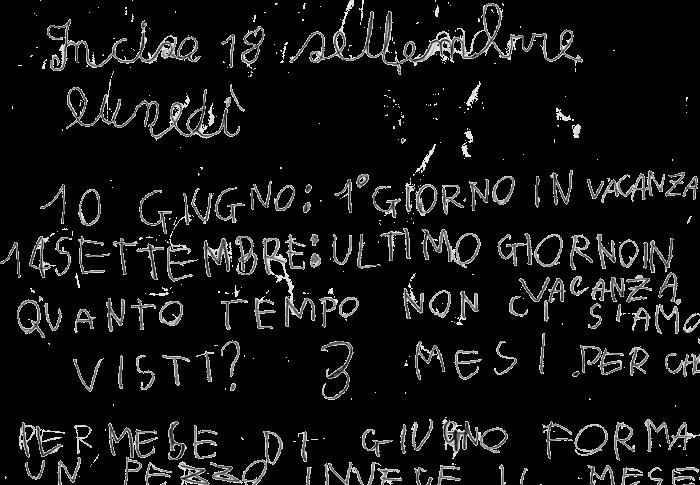 Incisa 18 settembre
lunedì
10 GIUGNO: 1° GIORNO IN VACANZA
14 SETTEMBRE: ULTIMO GIORNO IN
VACANZA
QUANTO TEMPO NON CI SIAMO
VISTI? 3 MESI PERCHE
PER MESE DI GIUGNO FORMA
UN PEZZO INVECE IL MESE